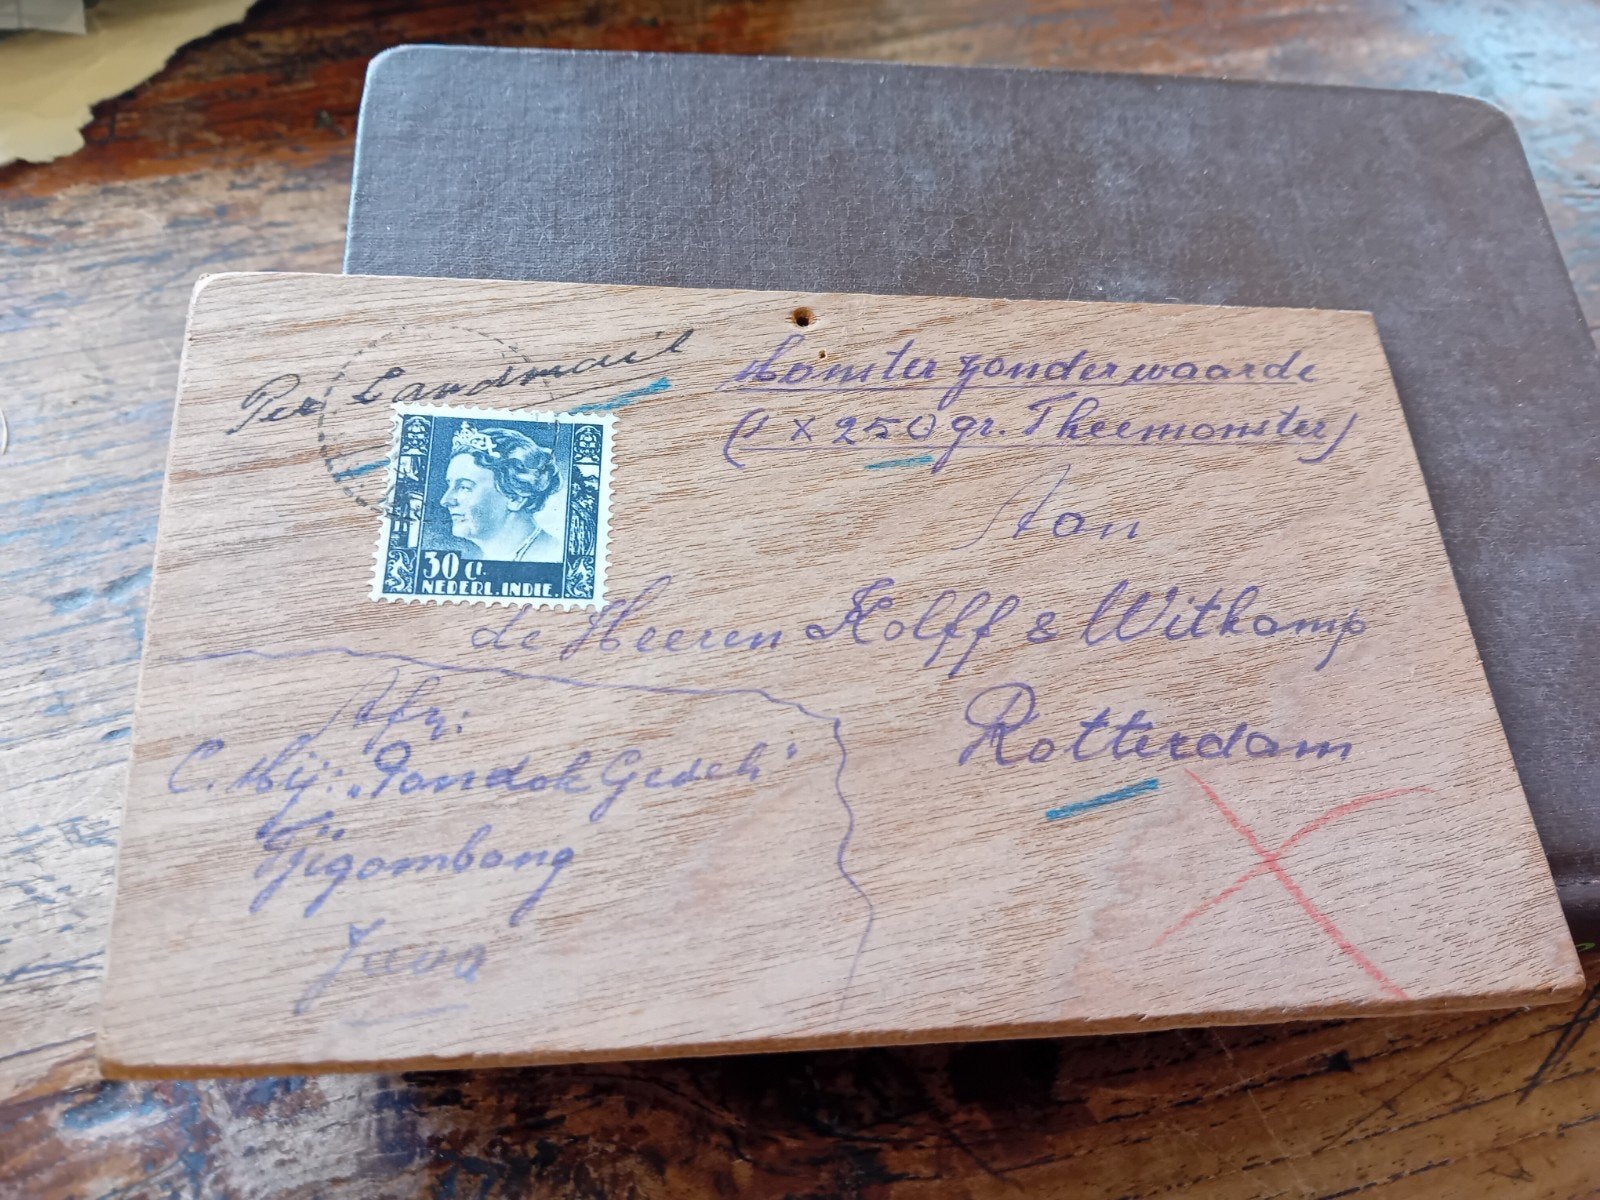 Per Landmail
Monster zonder waarde
(1 x 250 gr. Theemonster)
30 ct.
NEDERL. INDIE.
Aan
de Heeren Kolff & Witkamp
Rotterdam
Afz:
C. Mij: „Pondok Gedeh"
Tjigombong
Java